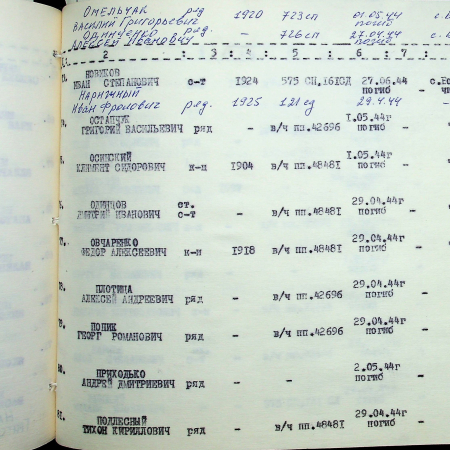 Омельчак ряд 1920 723 сп 01.05.44 с.
Василий Григорьевич погиб
Одинченко ряд. - 726 сп 27.04.44 с.
Алексей Иванович погиб
2 : 3 : 4 : 5 : 6 : 7 :
НОВИКОВ
ИВАН СТЕПАНОВИЧ с-т 1924 575 СП,161СД 27.06.44 -
погиб
Нарижный
Иван Фролович ряд. 1925 121 сд 29.4.44 -
ОСТАПЧУК 1.05.44г
ГРИГОРИЙ ВАСИЛЬЕВИЧ ряд - в/ч пп.42696 погиб -
ОСИНСКИЙ 1.05.44г
КЛИМЕНТ СИДОРОВИЧ к-ц 1904 в/ч пп.48481 погиб -
ОДИНЦОВ ст. 29.04.44г
ДМИТРИЙ ИВАНОВИЧ с-т - в/ч пп.48481 погиб -
ОВЧАРЕНКО 29.04.44г
ФЕДОР АЛЕКСЕЕВИЧ к-ц 1918 в/ч пп.48481 погиб -
ПЛОТИЦА 29.04.44г
АЛЕКСЕЙ АНДРЕЕВИЧ ряд - в/ч пп.42696 погиб -
ПОПИК 29.04.44г
ГЕОРГ РОМАНОВИЧ ряд - в/ч пп.42696 погиб -
80. ПРИХОДЬКО 2.05.44г
АНДРЕЙ ДМИТРИЕВИЧ ряд - - погиб -
81. ПОДЛЕСНЫЙ 29.04.44г
ТИХОН КИРИЛЛОВИЧ ряд - в/ч пп.48481 погиб -